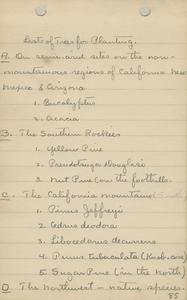 Lists of Trees for Planting.
A. On semi-arid sites on the non-
mountainous regions of California New
Mexico & Arizona
1. Eucalyptus
2. Acacia
B. The Southern Rockies
1. Yellow Pine
2. Pseudotsuga Douglasi
3. Nut Pine (on the foothills.
C. The California mountains
1. Pinus Jeffreyi
2. Cedrus deodora
3. Libocedrus decurrens
4. Pinus tuberculata (Knobcone)
5. Sugar Pine (in the north)
D. The Northwest - native species.
85